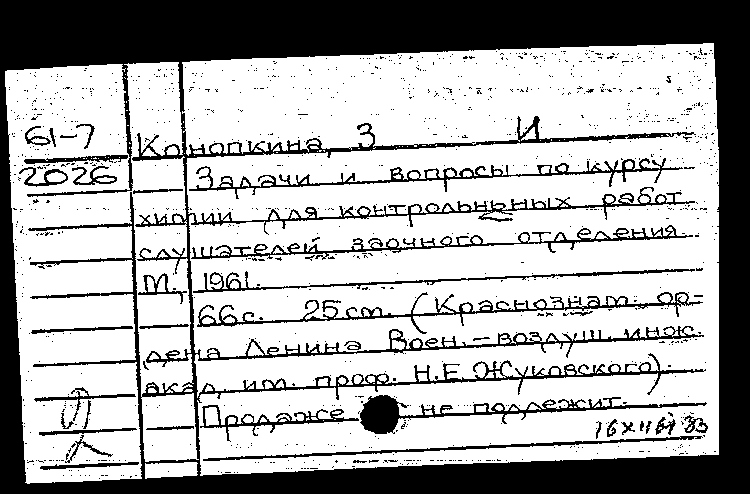 61-7
2026
Конопкина, З И
Задачи и вопросы по курсу
химии для контрольных работ
слушателей заочного отделения
М., 1961.
66с. 25см. (Краснознам. ор-
дена Ленина Воен.-воздуш. инж.
акад. им. проф. Н.Е.Жуковского).
Продаже не подлежит.